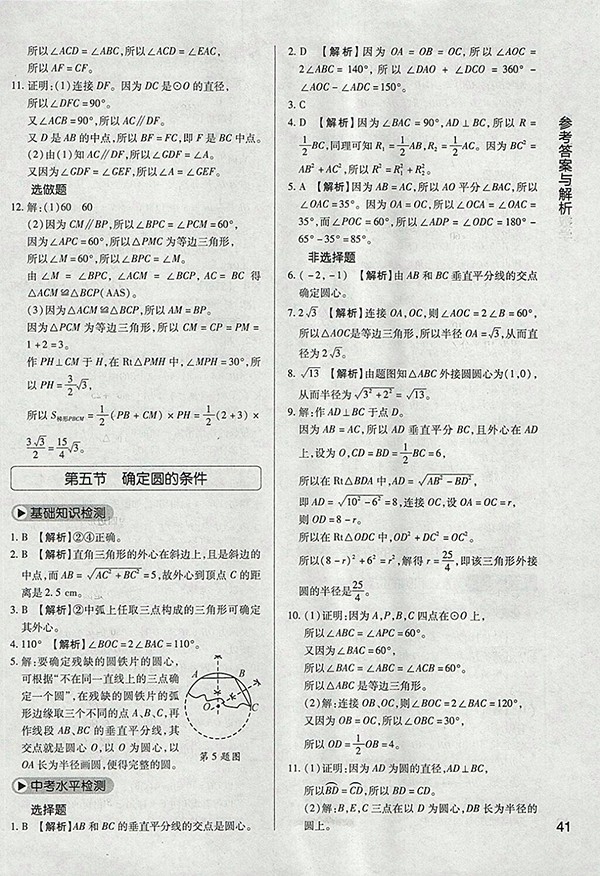 所以∠ACD=∠ABC,所以∠ACD=∠EAC,
所以AF=CF。
11. 证明:(1)连接DF。因为DC是⊙O的直径,
所以∠DFC=90°。
又∠ACB=90°,所以AC∥DF。
又D是AB的中点,所以BF=FC,即F是BC中点。
(2)由(1)知AC∥DF,所以∠GDF=∠A。
又因为∠GDF=∠GEF,所以∠GEF=∠A。
选做题
12. 解:(1)60 60
(2)因为CM∥BP,所以∠BPC=∠PCM=60°,
因为∠APC=60°,所以△PMC为等边三角形,
所以∠M=60°,所以∠BPC=∠M。
由∠M=∠BPC, ∠ACM=∠BCP, AC=BC得
△ACM≌△BCP(AAS)。
(3)因为△ACM≌△BCP,所以AM=BP。
因为△PCM为等边三角形,所以CM=CP=PM=
1+2=3。
作PH⊥CM于H,在Rt△PMH中,∠MPH=30°,所
以PH=3/2√3。
所以S梯形PBCM=1/2(PB+CM)×PH=1/2(2+3)×
3√3/2=15/4√3。
第五节 确定圆的条件
基础知识检测
1. B 【解析】②④正确。
2. B 【解析】直角三角形的外心在斜边上,且是斜边的
中点,而AB=√(AC²+BC²)=5,故外心到顶点C的距
离是2.5 cm。
3. B 【解析】②中弧上任取三点构成的三角形可确定
其外心。
4. 110° 【解析】∠BOC=2∠BAC=110°。
5. 解:要确定残缺的圆铁片的圆心,
可根据“不在同一直线上的三点确
定一个圆”,在残缺的圆铁片的弧
形边缘取三个不同的点A、B、C,再
作线段AB、BC的垂直平分线,其
交点就是圆心O,以O为圆心,以
OA长为半径画圆,便得完整的圆。
A B C O
第5题图
中考水平检测
选择题
1. B 【解析】AB和BC的垂直平分线的交点是圆心。
2. D 【解析】因为OA=OB=OC,所以∠AOC=
2∠ABC=140°,所以∠DAO+∠DCO=360°-
∠AOC-∠ADC=150°。
3. C
4. D 【解析】因为∠BAC=90°,AD⊥BC,所以R=
1/2BC,同理可知R₁=1/2AB,R₂=1/2AC。因为BC²=
AB²+AC²,所以R²=R₁²+R₂²。
5. A 【解析】因为AB=AC,所以AO平分∠BAC,所以
∠OAC=35°。因为OA=OC,所以∠OCA=∠OAC=
35°,而∠POC=60°,所以∠ADP=∠ODC=180°-
65°-35°=85°。
非选择题
6. (-2,-1) 【解析】由AB和BC垂直平分线的交点
确定圆心。
7. 2√3 【解析】连接OA,OC,则∠AOC=2∠B=60°,
所以△AOC是等边三角形,所以半径OA=√3,从而直
径为2√3。
8. √13 【解析】由题图知△ABC外接圆圆心为(1,0),
从而半径为√(3²+2²)=√13。
9. 解:作AD⊥BC于点D。
因为AB=AC,所以AD垂直平分BC,且外心在AD
上,设为O,CD=BD=1/2BC=6,
所以在Rt△BDA中,AD=√(AB²-BD²),
即AD=√(10²-6²)=8,连接OC,设OA=OC=r,
则OD=8-r。
所以在Rt△ODC中,OD²+DC²=OC²。
所以(8-r)²+6²=r²,解得r=25/4,即该三角形外接
圆的半径是25/4。
10. (1)证明:因为A,P,B,C四点在⊙O上,
所以∠ABC=∠APC=60°。
又因为∠BAC=60°,
所以∠BAC=∠ABC=∠ACB=60°。
所以△ABC是等边三角形。
(2)解:连接OB、OC,则∠BOC=2∠BAC=120°,
又因为OB=OC,所以∠OBC=30°,
所以OD=1/2OB=4。
11. (1)证明:因为AD为圆的直径,AD⊥BC,
所以BD⌒=CD⌒,所以BD=CD。
(2)解:B,E,C三点在以D为圆心,DB长为半径的
圆上。
参考答案与解析
41